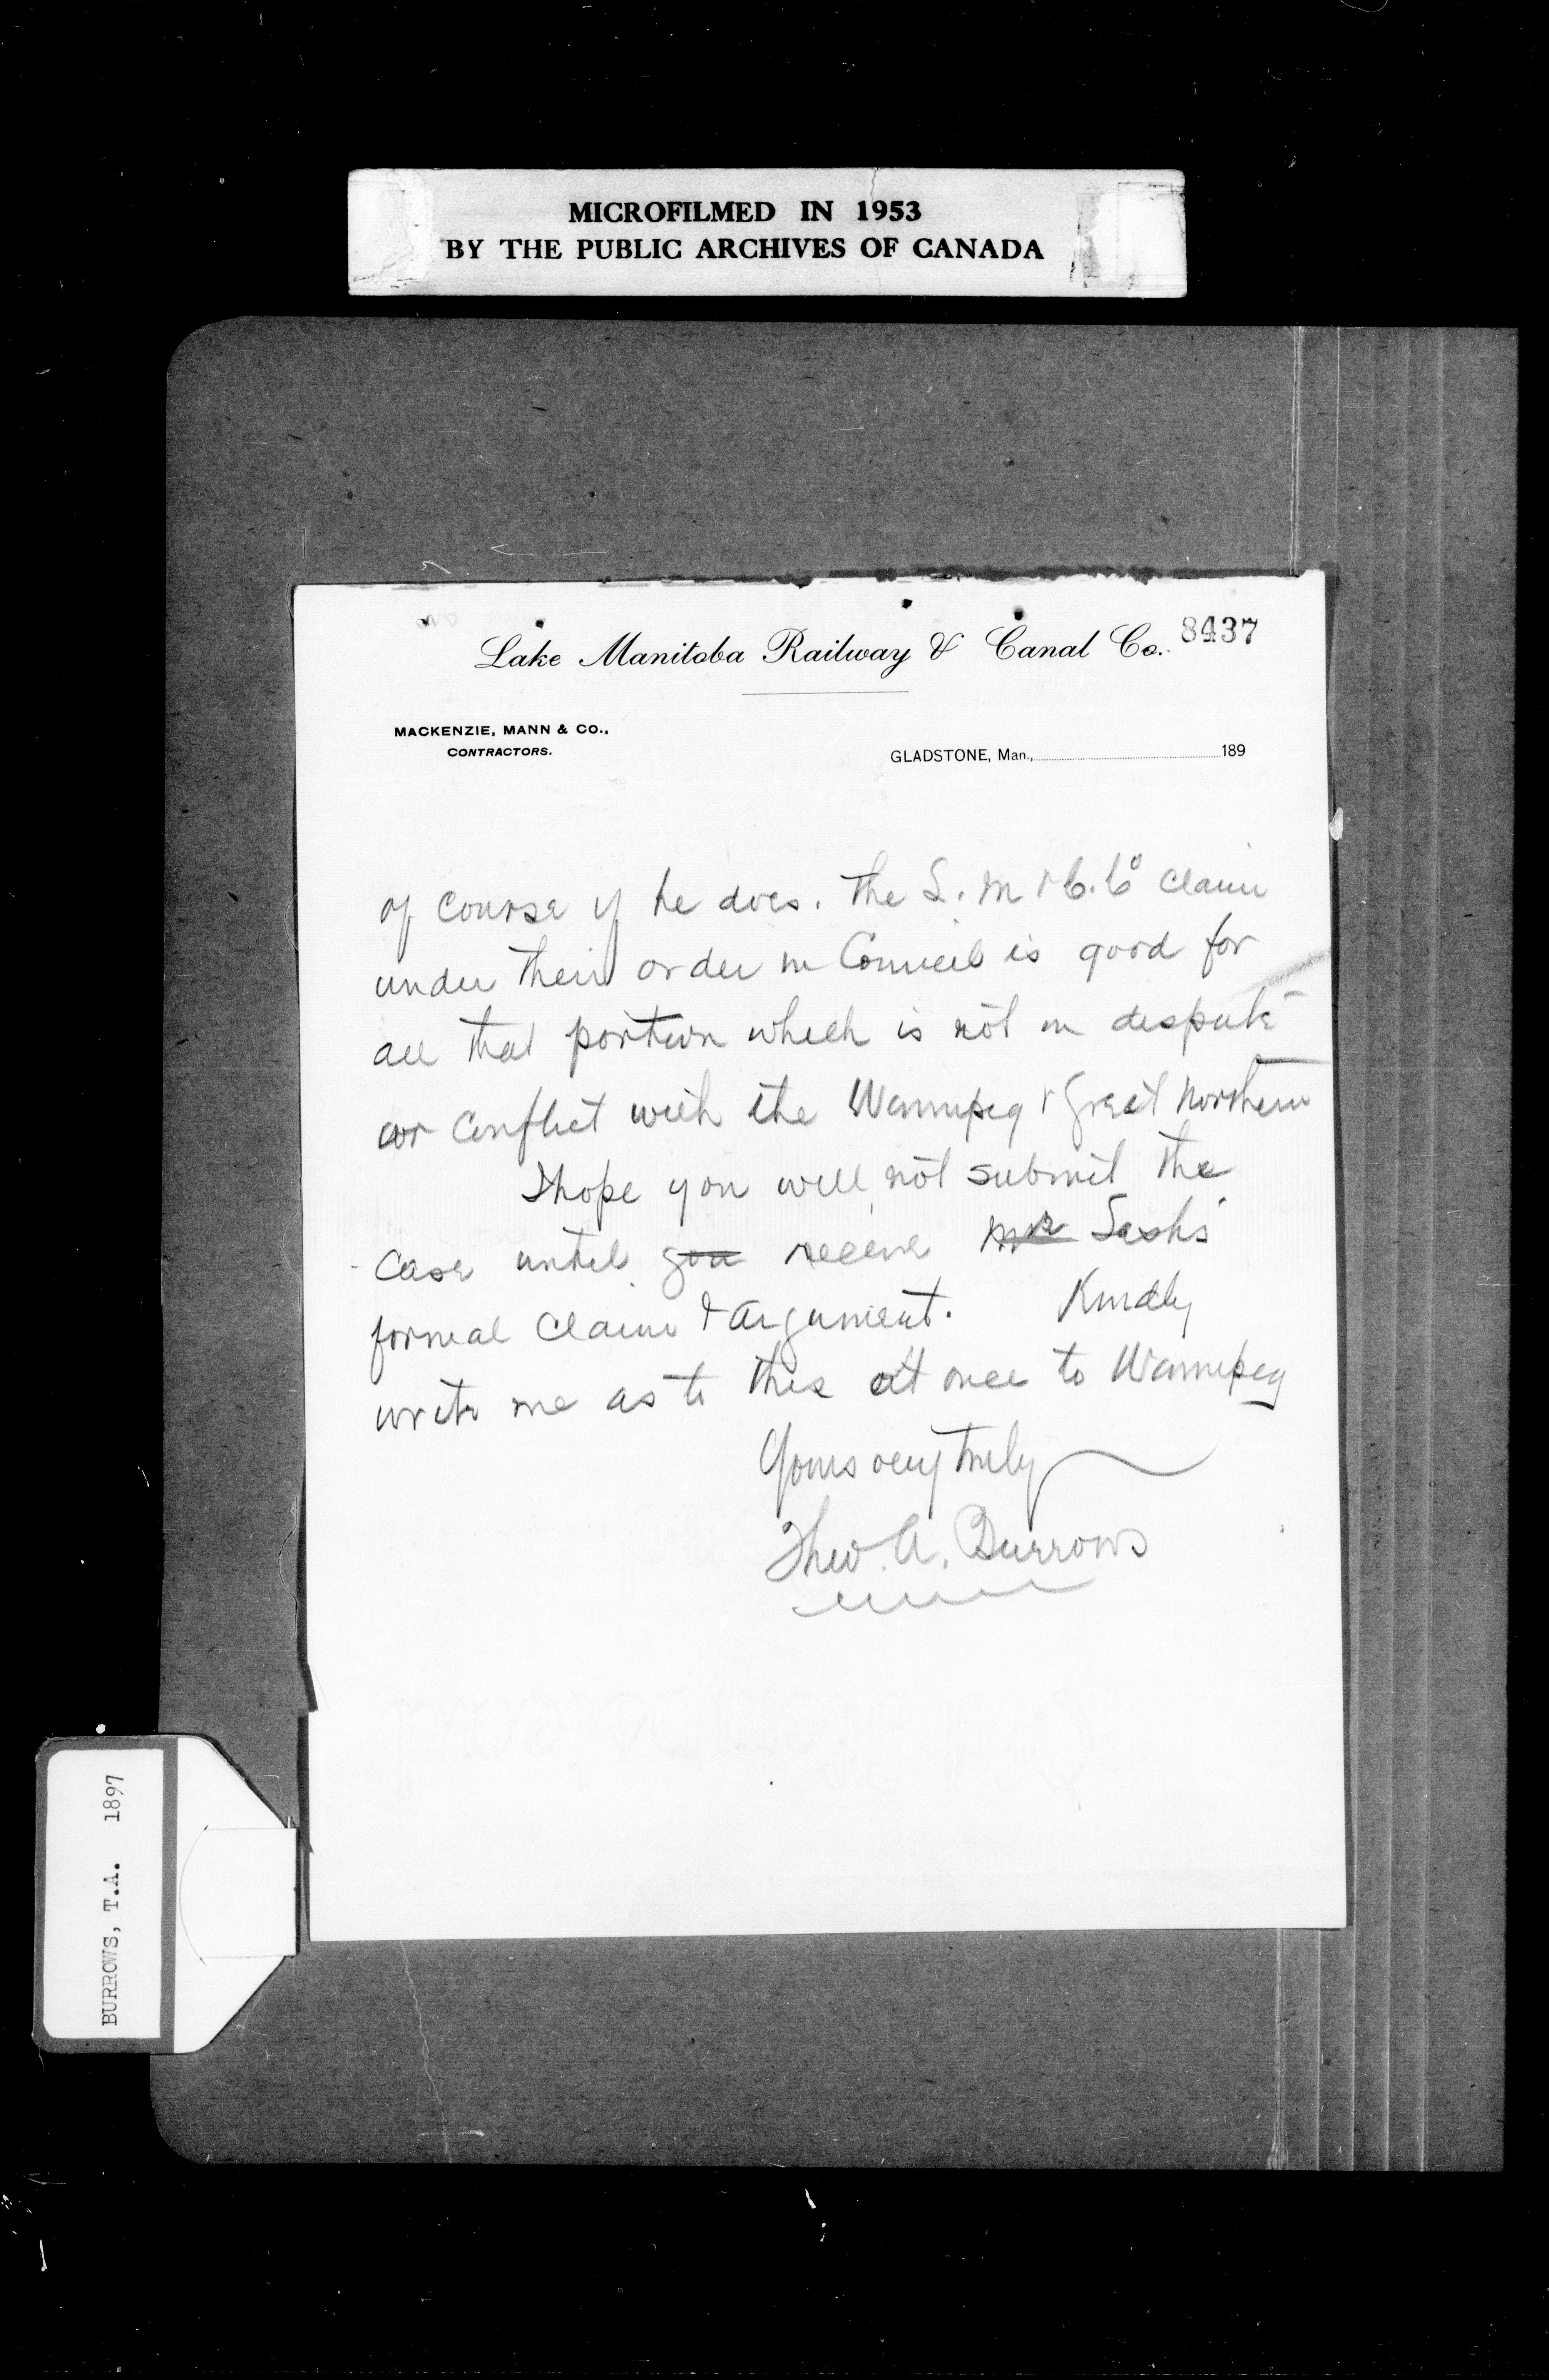 MICROFILMED IN 1953
BY THE PUBLIC ARCHIVES OF CANADA
8437
Lake Manitoba Railway & Canal Co.
MACKENZIE, MANN & CO.,
CONTRACTORS.
GLADSTONE, Man., 189
of course if he does. The L. M & C. Co claim
under their order in Council is good for
all that portion which is not in dispute
or conflict with the Winnipeg & Great Northern
I hope you will not submit the
case until you receive Mr
formal claim & argument. Kindly
write me as to this at once to Winnipeg
Yours very truly
Theo. A. Burrows
BURROWS, T.A. 1897